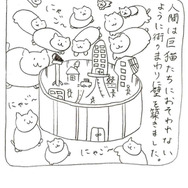 人間は巨猫たちにおそわれない
ように街のまわりに壁を築きました。
にゃご〜
にゃご〜
にゃご〜
にゃご〜